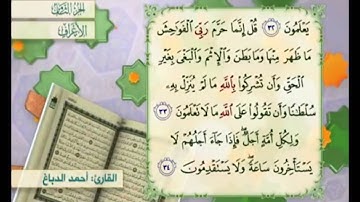 الجزء الثامن
الأعراف
يَعْلَمُونَ ٣٢ قُلْ إِنَّمَا حَرَّمَ رَبِّيَ الْفَوَاحِشَ
مَا ظَهَرَ مِنْهَا وَمَا بَطَنَ وَالْإِثْمَ وَالْبَغْيَ بِغَيْرِ
الْحَقِّ وَأَن تُشْرِكُوا بِاللَّهِ مَا لَمْ يُنَزِّلْ بِهِ
سُلْطَانًا وَأَن تَقُولُوا عَلَى اللَّهِ مَا لَا تَعْلَمُونَ ٣٣
وَلِكُلِّ أُمَّةٍ أَجَلٌ فَإِذَا جَاءَ أَجَلُهُمْ لَا
يَسْتَأْخِرُونَ سَاعَةً وَلَا يَسْتَقْدِمُونَ ٣٤
القارئ: أحمد الدباغ